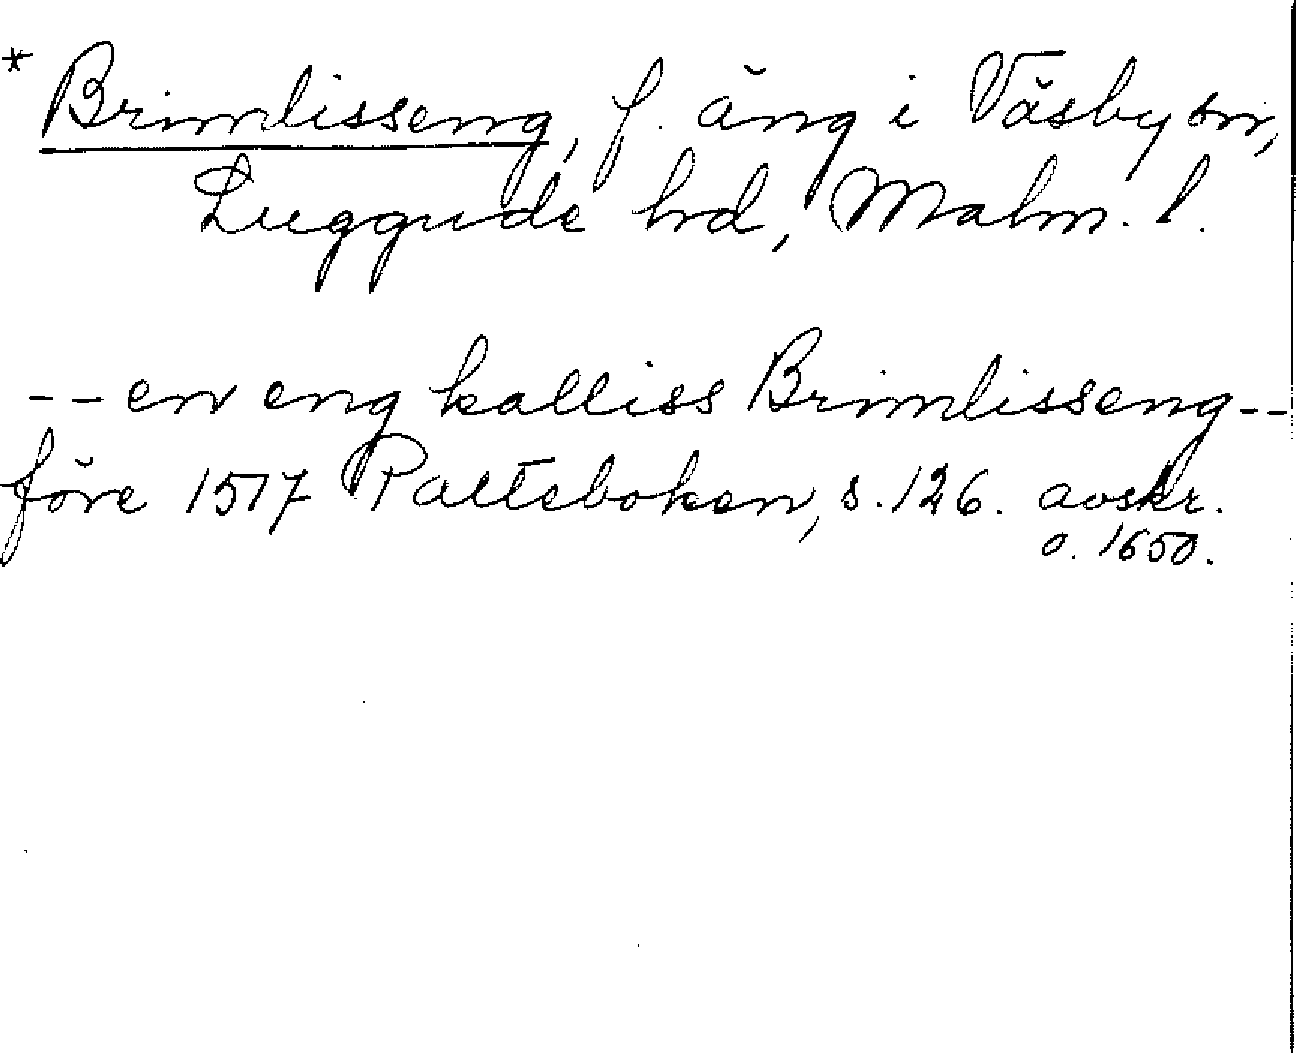 * Brimlisseng, f. äng i Väsby sn,
Luggude hd, Malm. l.
-- en eng kalliss Brimlisseng --
före 1517 Palteboken, s. 126. avskr.
o. 1650.